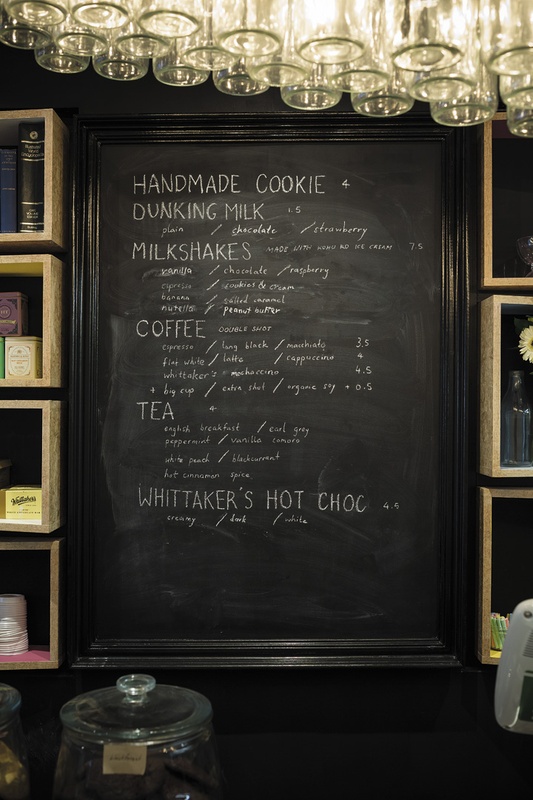 HANDMADE COOKIE 4
DUNKING MILK 1.5
plain / chocolate / strawberry
MILKSHAKES MADE WITH KOHU RD ICE CREAM 7.5
vanilla / chocolate / raspberry
espresso / cookies & cream
banana / salted caramel
nutella / peanut butter
COFFEE DOUBLE SHOT
espresso / long black / macchiato 3.5
flat white / latte / cappuccino 4
whittaker's mochaccino 4.5
+ big cup / extra shot / organic soy + 0.5
TEA 4
english breakfast / earl grey
peppermint / vanilla comoro
white peach / blackcurrant
hot cinnamon spice
WHITTAKER'S HOT CHOC 4.5
creamy / dark / white
Whittaker's